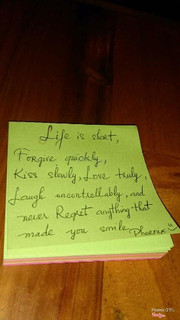 Life is short,
Forgive quickly,
Kiss slowly, Love truly,
Laugh uncontrollably, and
never Regret anything that
made you smile
Phoenix